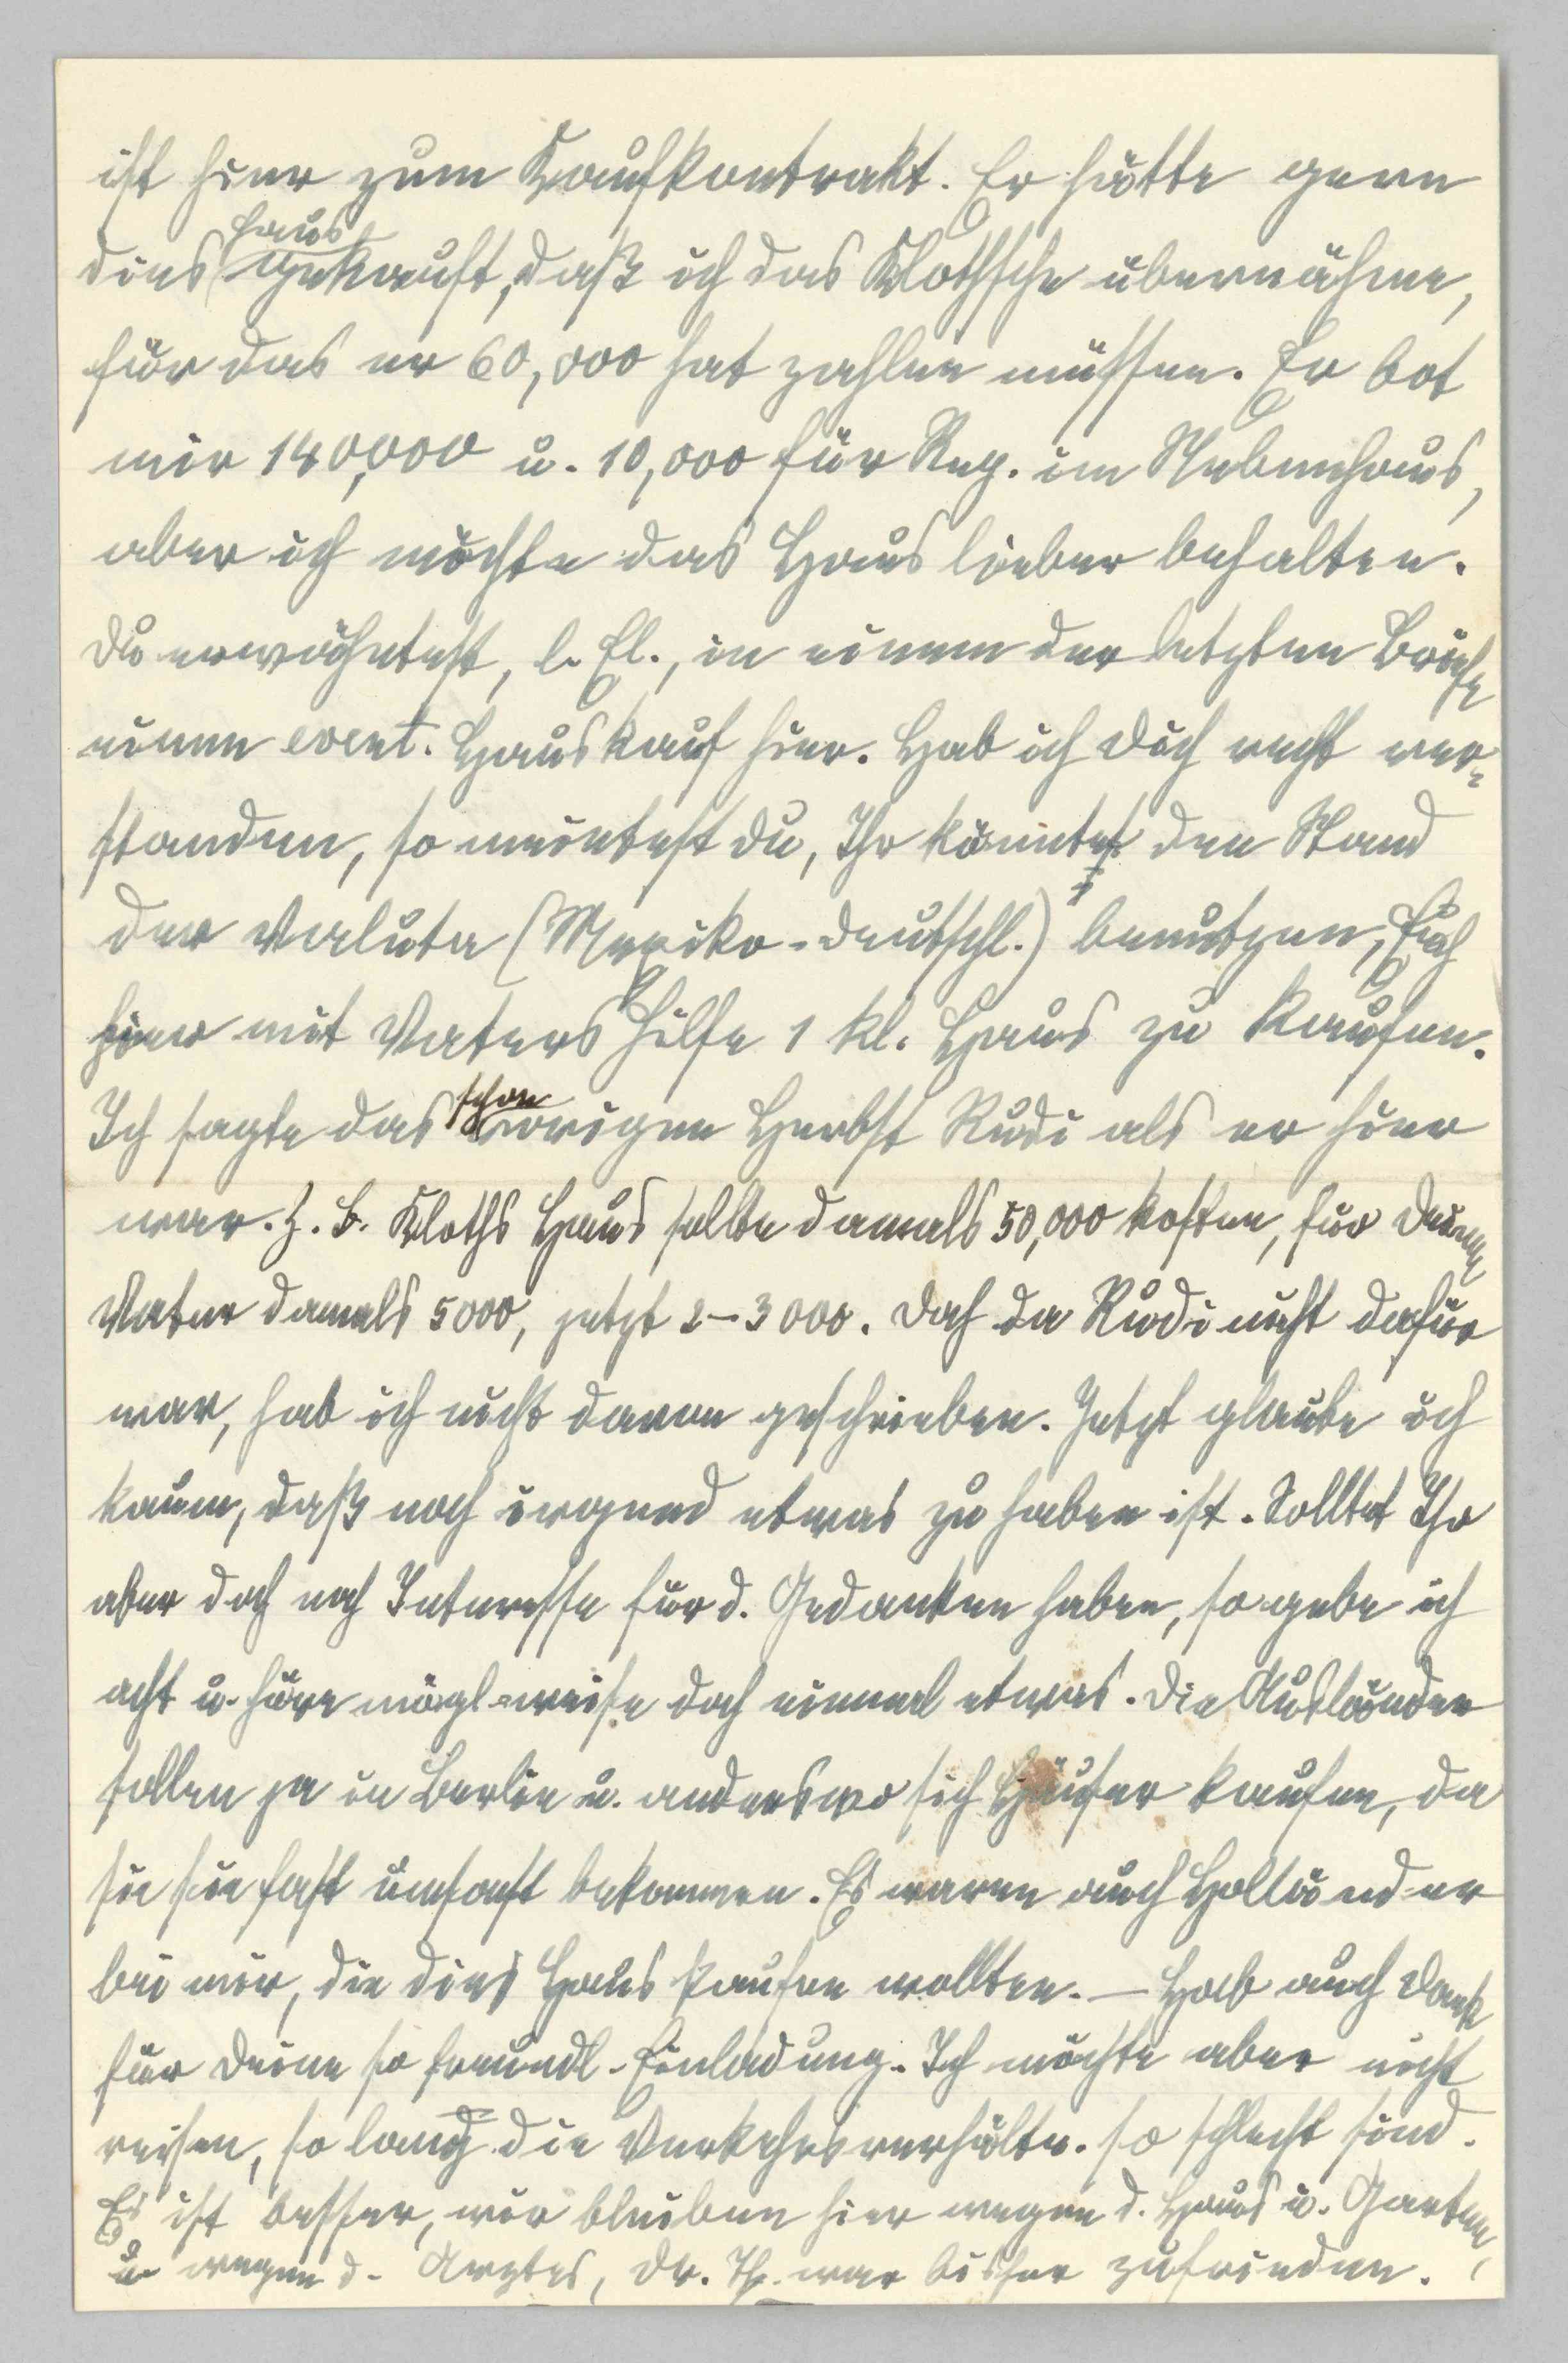 ist hier zum Kaufkontrakt. Er hätte gern
Haus
dies gekauft, daß ich das Klothsche übernähme,
für das er 60,000 hat zahlen müssen. Er bot
mir 140,000 u. 10,000 für Rep. im Nebenhaus,
aber ich möchte das Haus lieber behalten.
Du erwähntest, l. El., in einem der letzten Briefe
einen event. Hauskauf hier. Hab ich Dich recht ver-
standen, so meintest Du, Ihr könntet den Stand
der Valuta (Mexiko-Deutschl.) benutzen, Euch
hier mit Vaters Hilfe 1 kl. Haus zu kaufen.
schon
Ich sagte das vorigen Herbst Rudi als er hier
war. Z. B. Kloths Haus sollte damals 50,000 kosten, für Deinen
Vater damals 5000, jetzt 2-3000. Doch da Rudi nicht dafür
war, hab ich nicht davon geschrieben. Jetzt glaube ich
kaum, daß noch irgend etwas zu haben ist. Solltet Ihr
aber doch noch Interesse für d. Gedanken haben, so gebe ich
acht u. höre mögl-weise doch einmal etwas. Die Ausländer
sollen ja in Berlin u. anderswo sich Häuser kaufen, da
sie sie fast umsonst bekommen. Es waren auch Holländer
bei mir, die dies Haus kaufen wollten. — Hab auch Dank
für Deine so freundl. Einladung. Ich möchte aber nicht
reisen, so lang die Verkehrsverhältn. so schlecht sind.
Es ist besser, wir bleiben hier wegen d. Haus u. Garten,
u. wegen d. Arztes, Dr. Th. war bisher zufrieden.